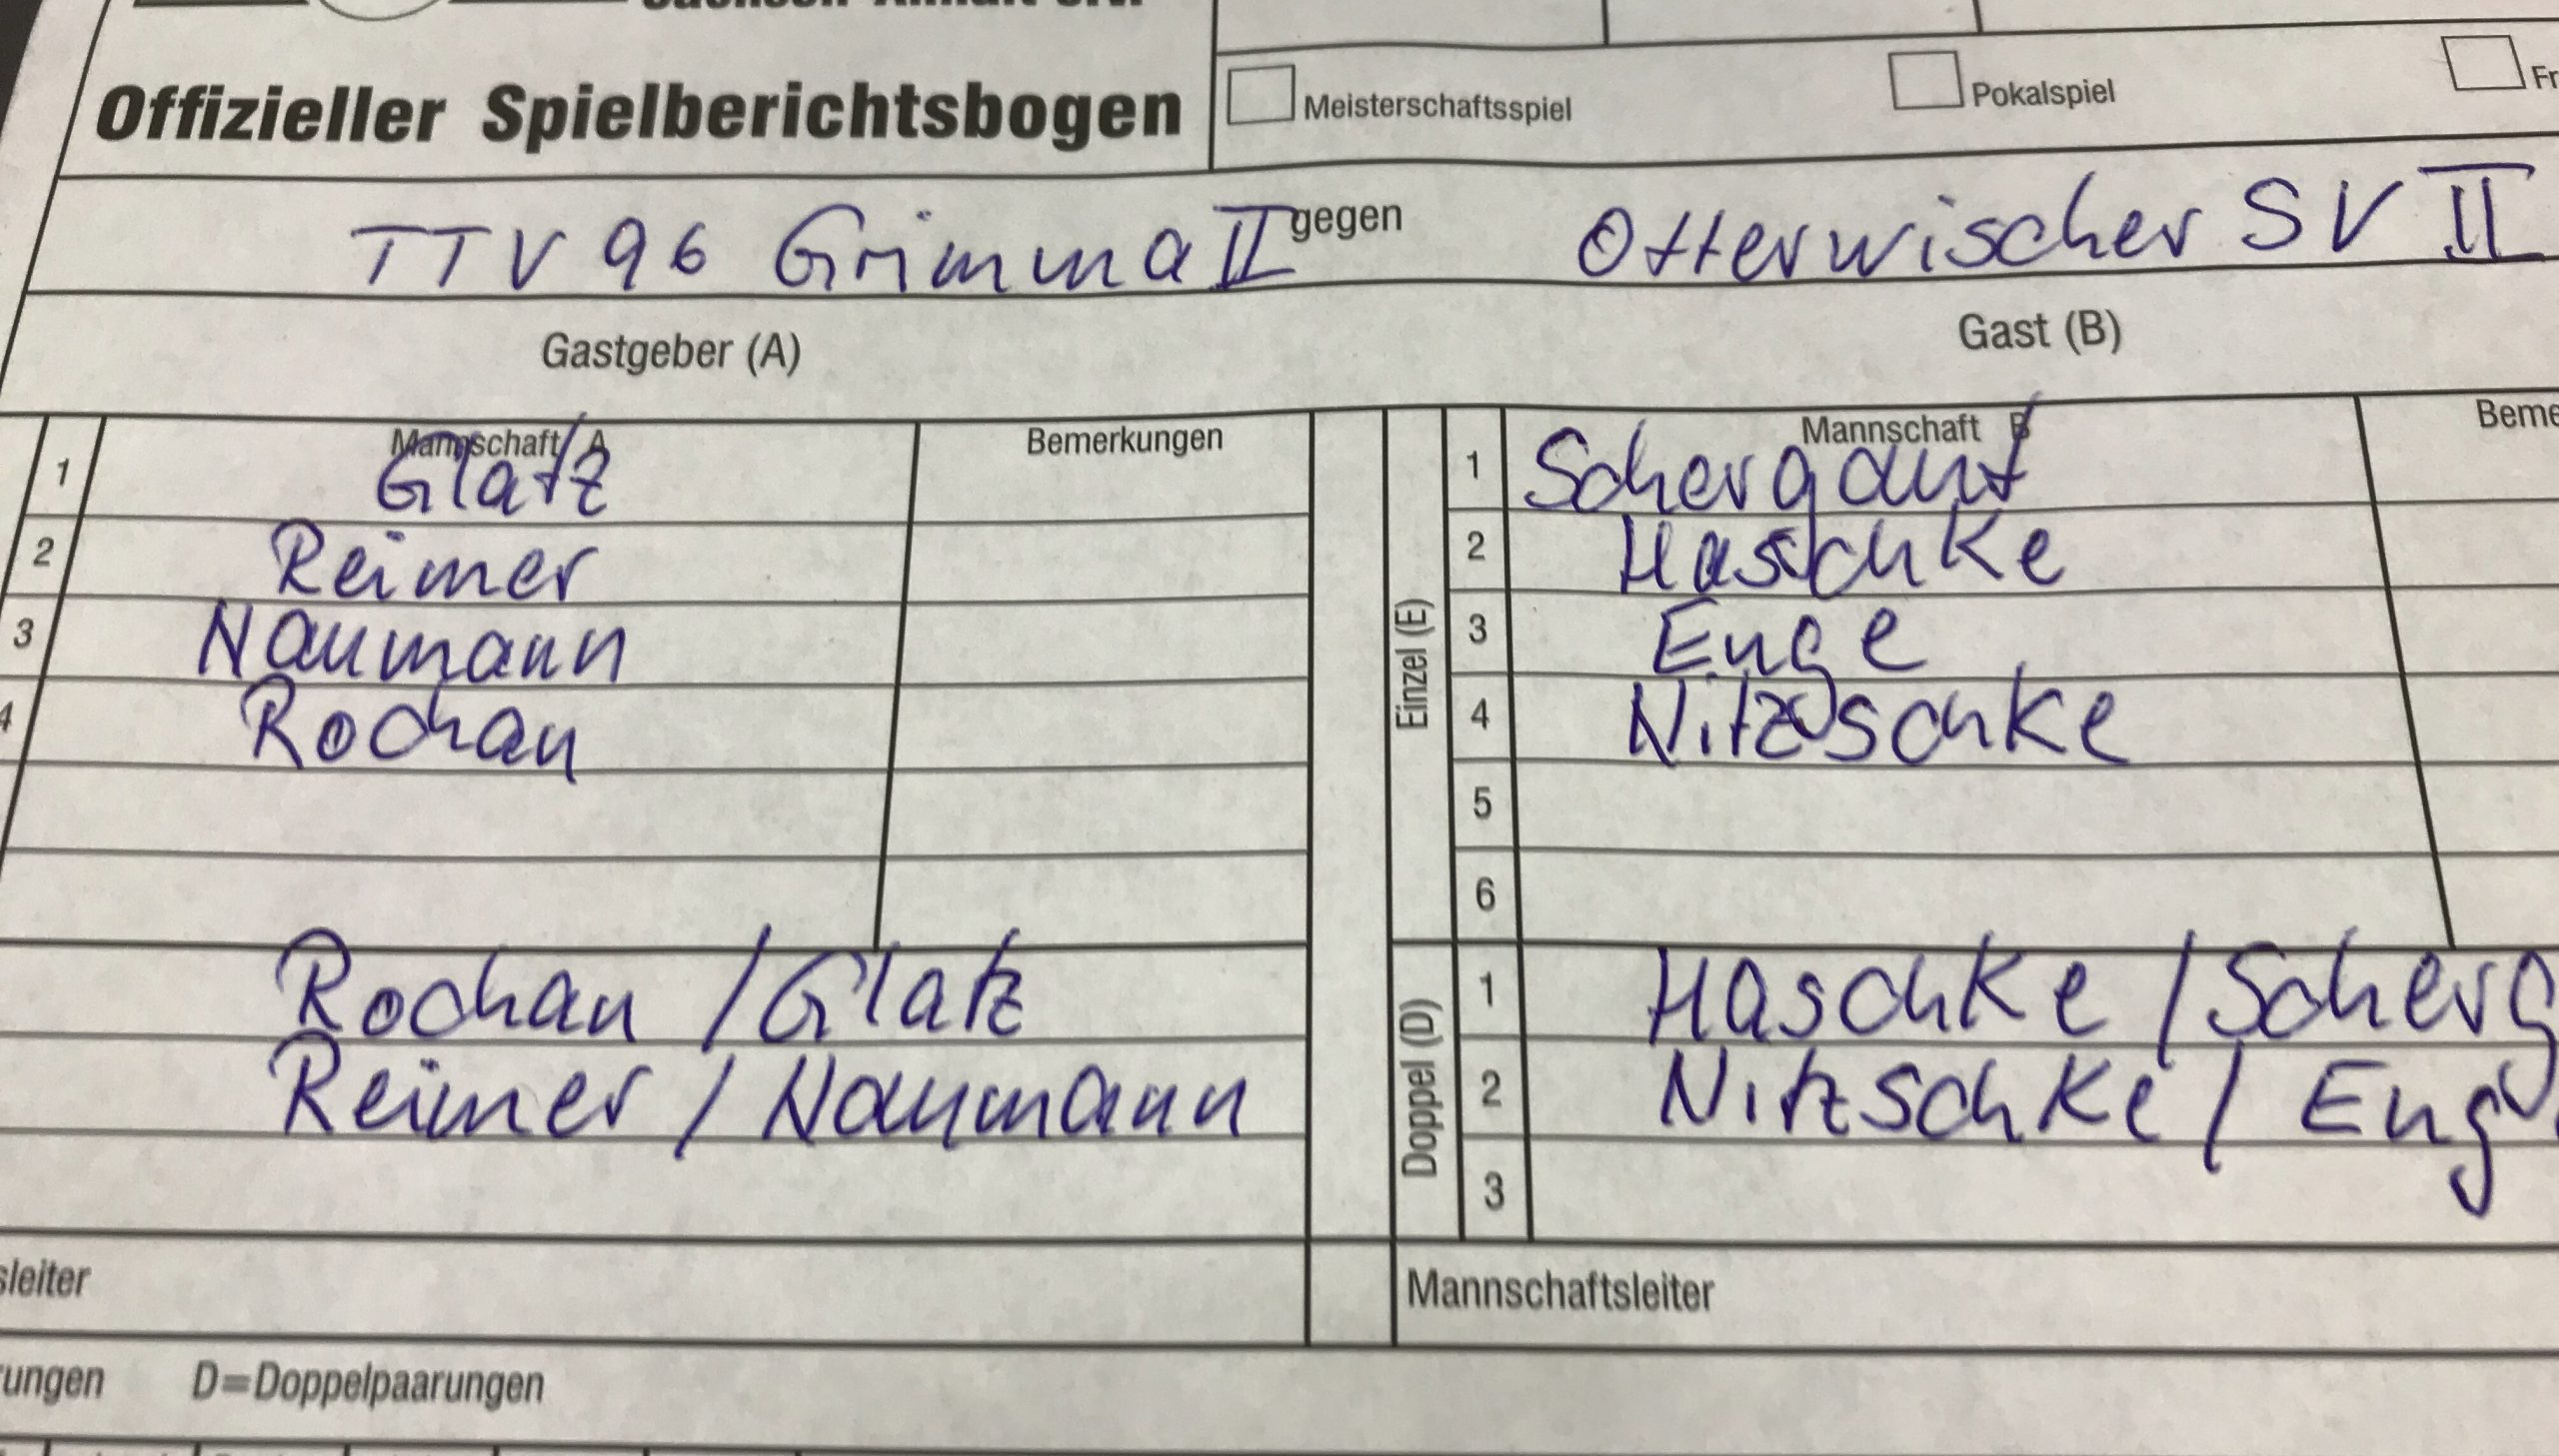 Offizieller Spielberichtsbogen
Meisterschaftsspiel Pokalspiel Fr
TTV 96 Grimma II gegen Otterwischer SV II
Gastgeber (A) Gast (B)
Mannschaft A Bemerkungen Mannschaft B Beme
1 Glatz 1 Schergaut
2 Reimer 2 Haschke
3 Naumann 3 Enge
4 Rochau 4 Nitzschke
Einzel (E)
5
6
Rochau / Glatz 1 Haschke / Scherg
Reimer / Naumann 2 Nitzschke / Eng
Doppel (D)
3
sleiter Mannschaftsleiter
rungen D=Doppelpaarungen